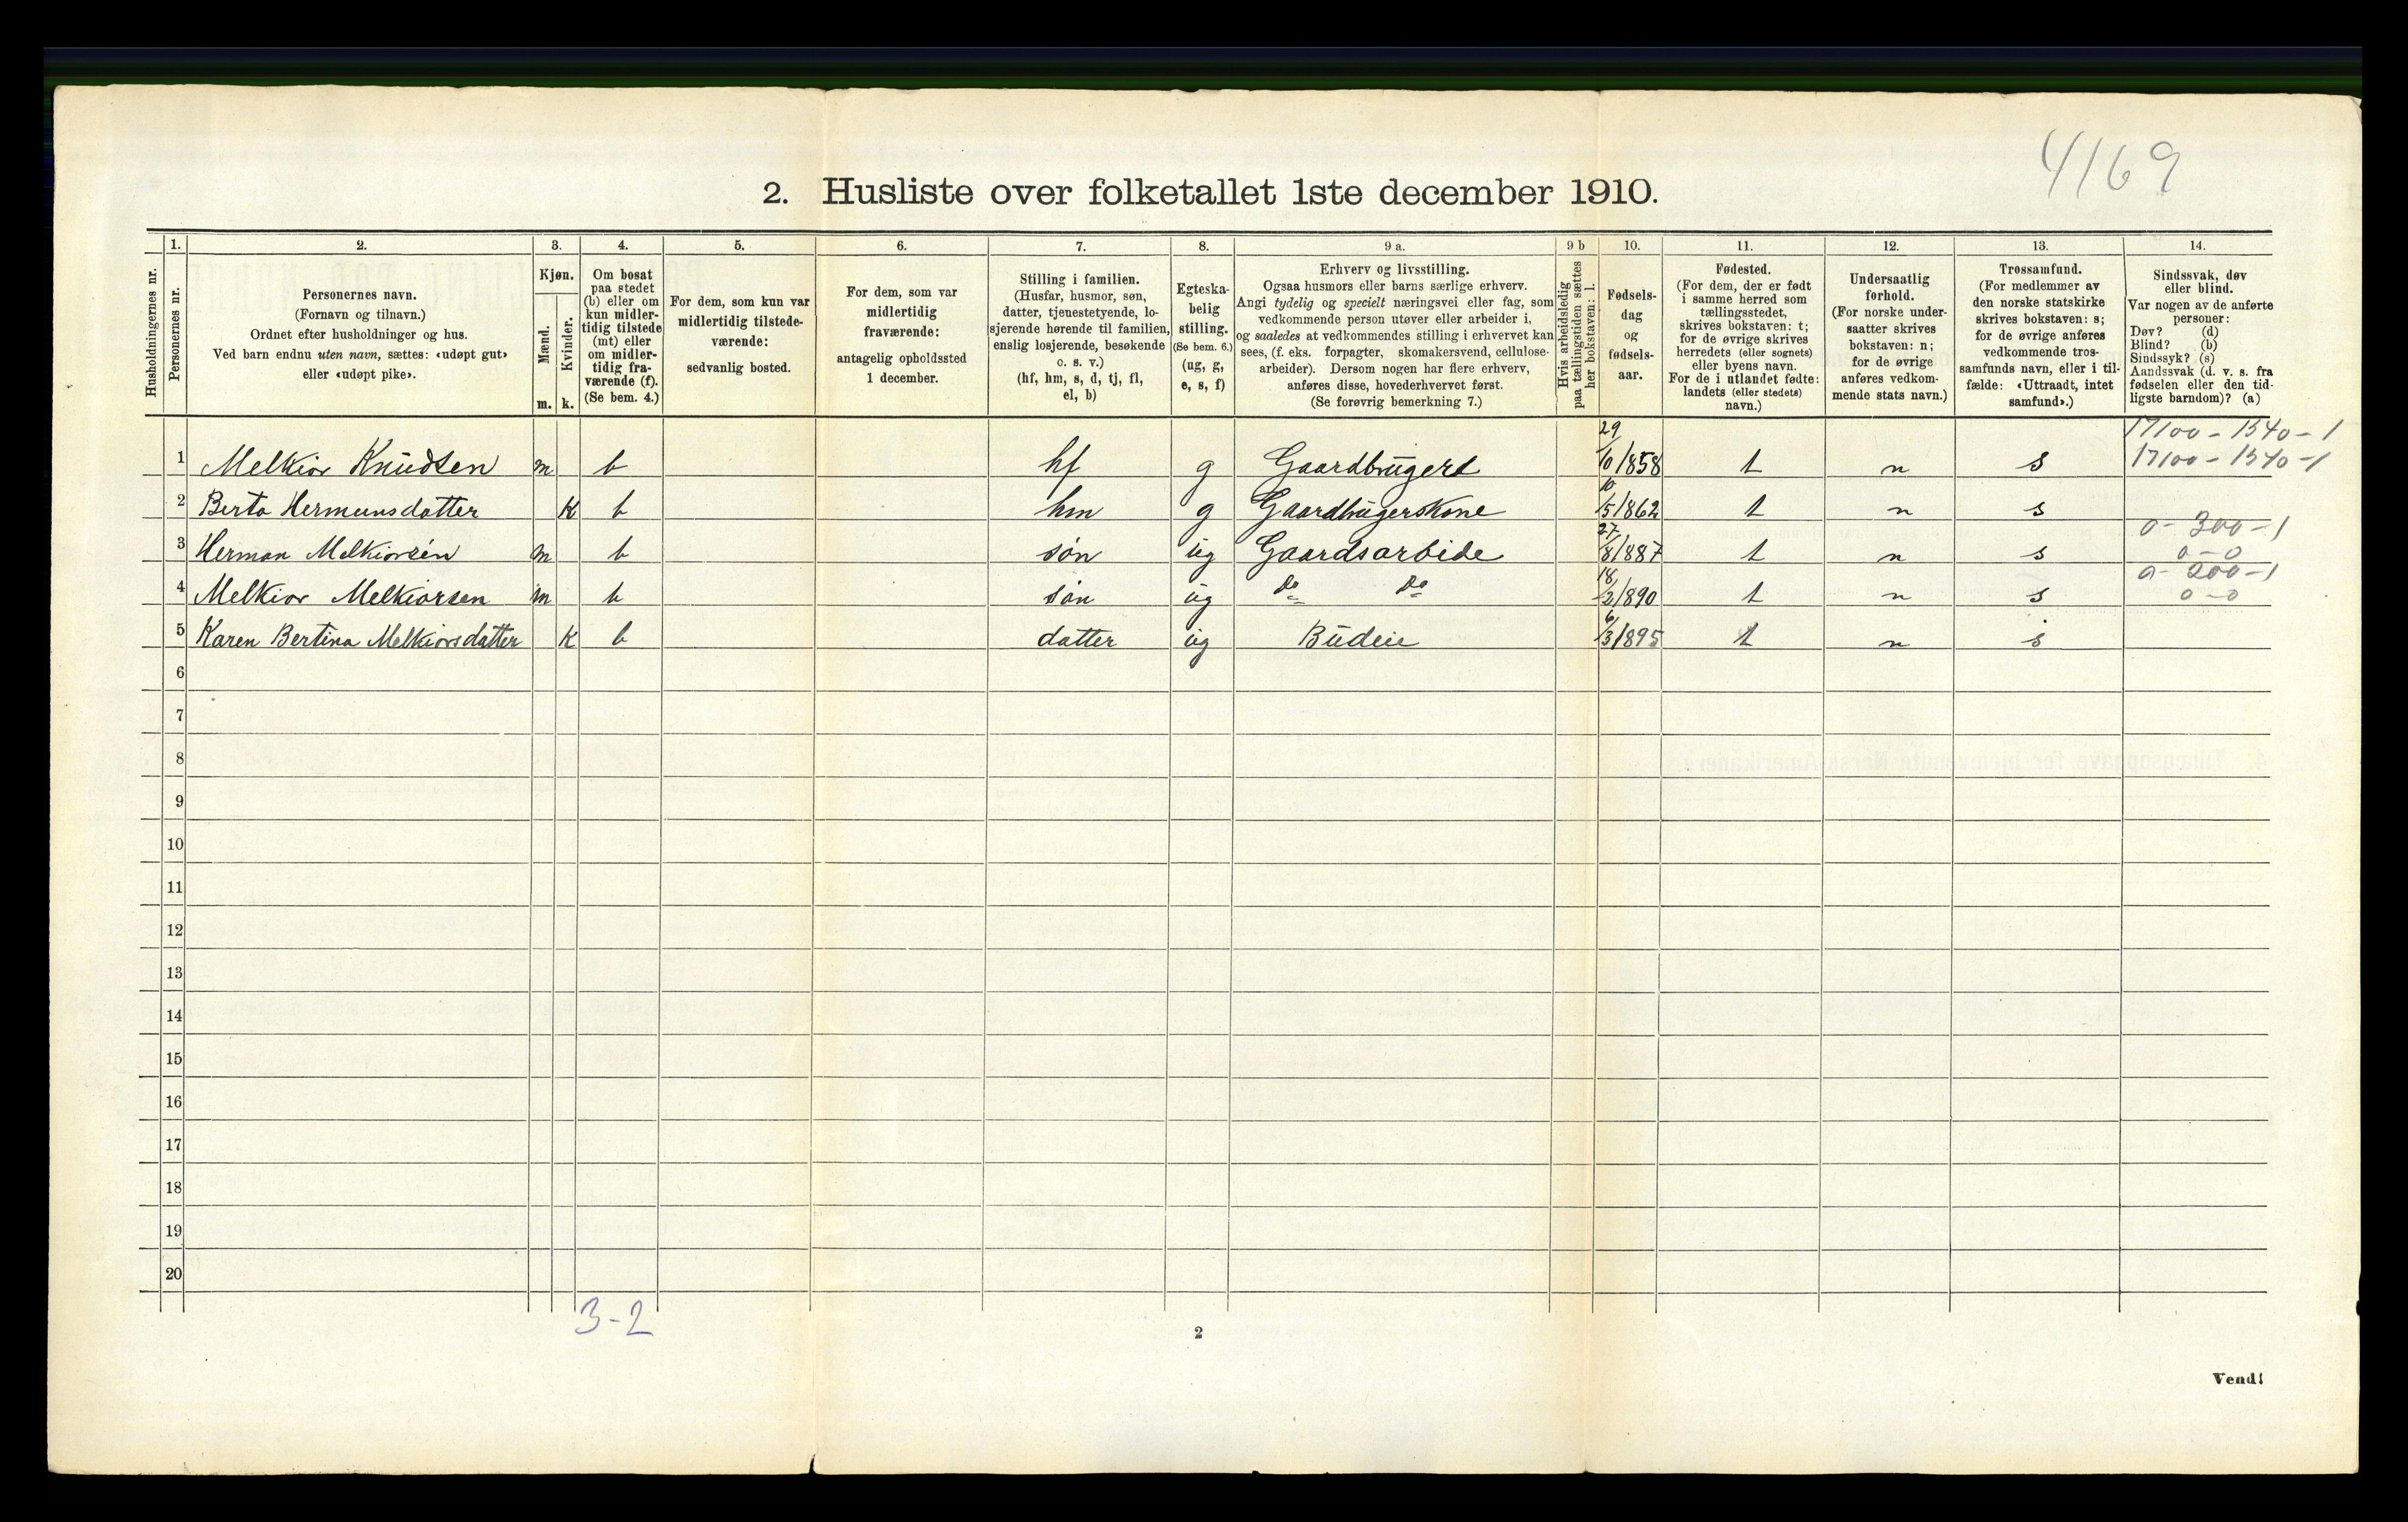 4169
2. Husliste over folketallet 1ste december 1910.
Husholdningernes nr.
1.
Personernes nr.
2.
Personernes navn.
(Fornavn og tilnavn.)
Ordnet efter husholdninger og hus.
Ved barn endnu uten navn, sættes: «udøpt gut»
eller «udøpt pike».
3.
Kjøn.
Mænd.
Kvinder.
m. k.
4.
Om bosat
paa stedet
(b) eller om
kun midler-
tidig tilstede
(mt) eller
om midler-
tidig fra-
værende (f).
(Se bem. 4.)
5.
For dem, som kun var
midlertidig tilstede-
værende:
sedvanlig bosted.
6.
For dem, som var
midlertidig
fraværende:
antagelig opholdssted
1 december.
7.
Stilling i familien.
(Husfar, husmor, søn,
datter, tjenestetyende, lo-
sjerende hørende til familien,
enslig losjerende, besøkende
o. s. v.)
(hf, hm, s, d, tj, fl,
el, b)
8.
Egteska-
belig
stilling.
(Se bem. 6.)
(ug, g,
e, s, f)
9 a.
Erhverv og livsstilling.
Ogsaa husmors eller barns særlige erhverv.
Angi tydelig og specielt næringsvei eller fag, som
vedkommende person utøver eller arbeider i,
og saaledes at vedkommendes stilling i erhvervet kan
sees, (f. eks. forpagter, skomakersvend, cellulose-
arbeider). Dersom nogen har flere erhverv,
anføres disse, hovederhvervet først.
(Se forøvrig bemerkning 7.)
9 b
Hvis arbeidsledig
paa tællingstiden sættes
her bokstaven: l.
10.
Fødsels-
dag
og
fødsels-
aar.
11.
Fødested.
(For dem, der er født
i samme herred som
tællingsstedet,
skrives bokstaven: t;
for de øvrige skrives
herredets (eller sognets)
eller byens navn.
For de i utlandet fødte:
landets (eller stedets)
navn.)
12.
Undersaatlig
forhold.
(For norske under-
saatter skrives
bokstaven: n;
for de øvrige
anføres vedkom-
mende stats navn.)
13.
Trossamfund.
(For medlemmer av
den norske statskirke
skrives bokstaven: s;
for de øvrige anføres
vedkommende tros-
samfunds navn, eller i til-
fælde: «Uttraadt, intet
samfund».)
14.
Sindssvak, døv
eller blind.
Var nogen av de anførte
personer:
Døv? (d)
Blind? (b)
Sindssyk? (s)
Aandssvak (d. v. s. fra
fødselen eller den tid-
ligste barndom)? (a)
17100 - 1540 - 1
1 Melkior Knudsen m b hf g Gaardbrugert 29/10 1858 t n s 17100 - 1540 - 1
2 Berta Hermunsdatter K b hm g Gaardbrugerskone 10/5 1862 t n s
0 - 300 - 1
3 Herman Melkiorsen m b søn ug Gaardsarbide 27/8 1887 t n s 0 - 0
0 - 200 - 1
4 Melkior Melkiorsen m b søn ug Do Do 18/2 1890 t n s 0 - 0
5 Karen Bertina Melkiorsdatter K b datter ug Budeie 6/3 1895 t n s
6
7
8
9
10
11
12
13
14
15
16
17
18
19
20
3-2
2
Vend!